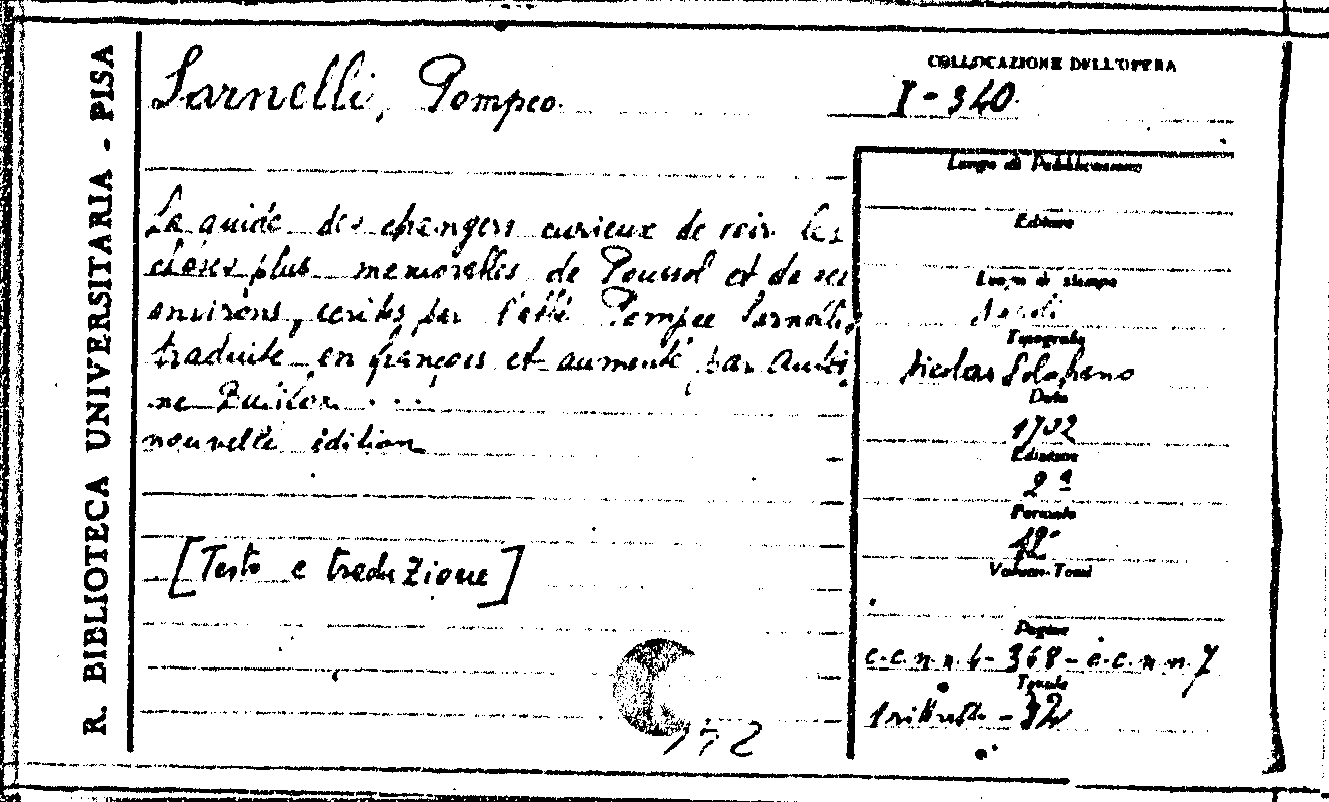 R. BIBLIOTECA UNIVERSITARIA - PISA
Sarnelli, Pompeo.
La guide des etrangers curieux de voir les
choses plus memorables de Poussol et de ses
environs, ecrites par l'abbé Pompee Sarnelli,
traduite en françois et aumenté par Antoi
ne Bulifon ...
nouvelle édition
[Testo e traduzione]
172
COLLOCAZIONE DELL'OPERA
I - 340.
Luogo di Pubblicazione
Editore
Luogo di stampa
Napoli
Tipografo
Nicolas
Data
1702
Edizione
2ª
Formato
12°
Volumi-Tomi
Pagine
c.c.n.n. 6 - 368 - c.c.n.n. 7
Tavole
- 32